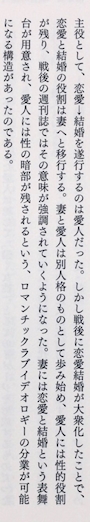 主役として、恋愛↓結婚を遂行するのは愛人だった。しかし戦後に恋愛結婚が大衆化したことで、
恋愛と結婚の役割は妻へと移行する。妻と愛人は別人格のものとして歩み始め、愛人には性的役割
が残り、戦後の週刊誌ではその意味が強調されていくようになった。妻には恋愛と結婚という表舞
台が用意され、愛人には性の暗部が残されるという、ロマンチックラブイデオロギーの分業が可能
になる構造があったのである。